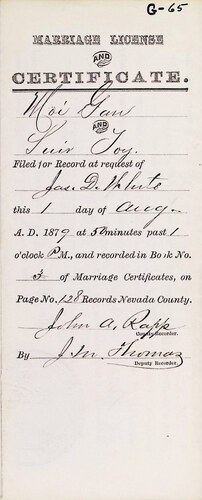 G-65
MARRIAGE LICENSE
AND
CERTIFICATE.
Moi Gan
AND
Suir Toy.
Filed for Record at request of
Jas. D. White
this 1 day of Aug.
A. D. 1879 at 50 minutes past 1
o'clock P.M., and recorded in Book No.
3 of Marriage Certificates, on
Page No. 128 Records Nevada County.
John A. Rapp
County Recorder.
By J. M. Thomas
Deputy Recorder.